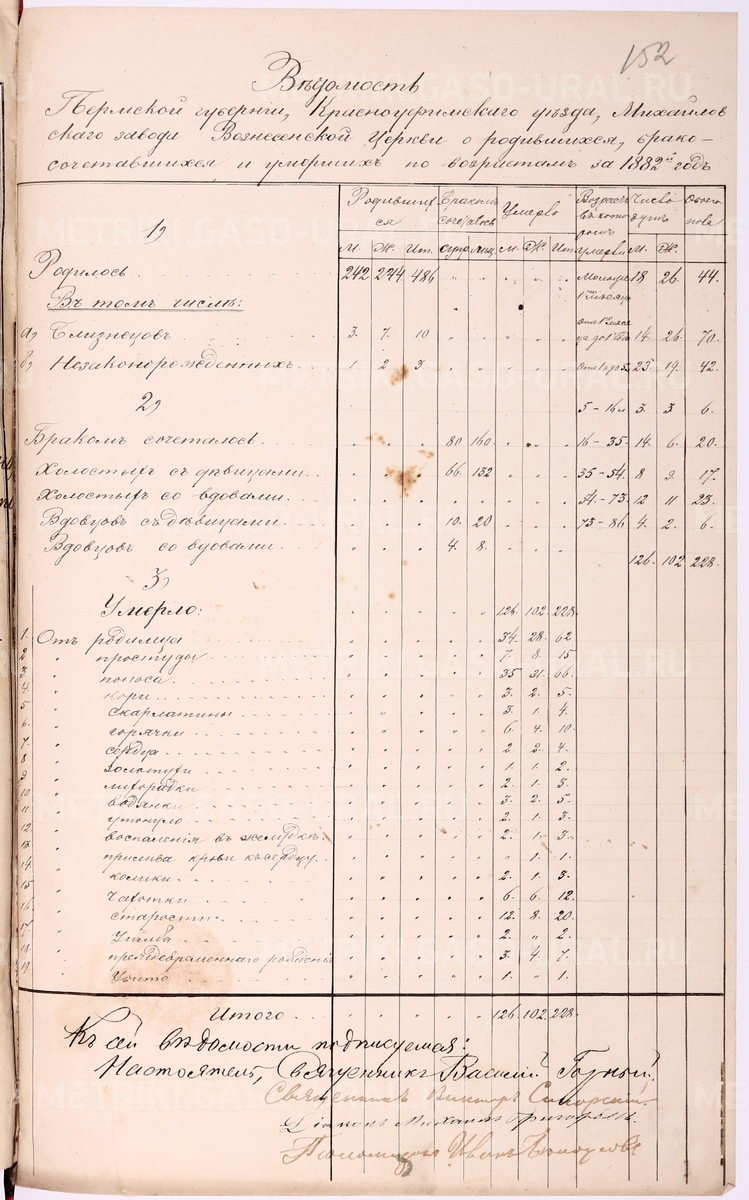 152
Вѣдомость
Пермской губерніи, Красноуфимскаго уѣзда, Михайлов
скаго завода Вознесенской Церкви о родившихся, брако-
сочетавшихся и умершихъ по возрастам за 1882й годъ
1) Родивших ся Бракомъ сочеталось Умерло Возрастъ въ кото ромъ умерли Число душъ Обоего пола
М. Ж. Ит. М. Ж. Ит. М. Ж.
Родилось 242 244 486 18 26. 44.
Въ томъ числѣ:
а) Близнецовъ 3. 7. 10 14. 26. 70.
в) Незаконорожденныхъ. 1. 2 3 23. 19. 42.
2) 5-16 3. 3 6.
Бракомъ сочеталось. 80. 160. 16-35. 14. 6. 20.
Холостыхъ съ дѣвицами. 66. 132 35-54. 8 9. 17.
Холостыхъ со вдовами. 54.-73. 12 11 23.
Вдовцовъ съ дѣвицами. 10. 20 73-86 4. 2. 6.
Вдовцовъ со вдовами. 4. 8.
126. 102 228.
3)
Умерло: 126. 102. 228.
1. Отъ родимца 34. 28. 62
2 " простуды 7. 8. 15
3. " поноса. 35 31. 66.
4. " кори. 3. 2. 5.
5 " скарлатины 3. 1. 4.
6. " горячки 6. 4. 10
7. " сердца 2. 2. 4.
8 " золотухи 1. 1. 2.
9 " лихорадки 2. 1. 3.
10 " водянки 3. 2. 5.
11 " утонуло 2. 1. 3.
12. " воспаленія въ желудкѣ. 2. 1. 3.
13. " прилива крови къ сердцу. " 1. 1.
14. " колики. 2. 1. 3.
15 " чахотки 6. 6. 12.
16. " старости. 12. 8. 20.
17. " Ушиба 2. " 2.
18. " преждевременнаго рожденія 3. 4. 7.
19. " Убито 1. " 1.
Итого 126. 102. 228.
Къ сей вѣдомости подписуемся:
Настоятель, священникъ Василій Горный.
Священникъ Викторъ
Діаконъ Михаилъ
Псаломщикъ Иванъ
METRIKI.GASO-URAL.RU